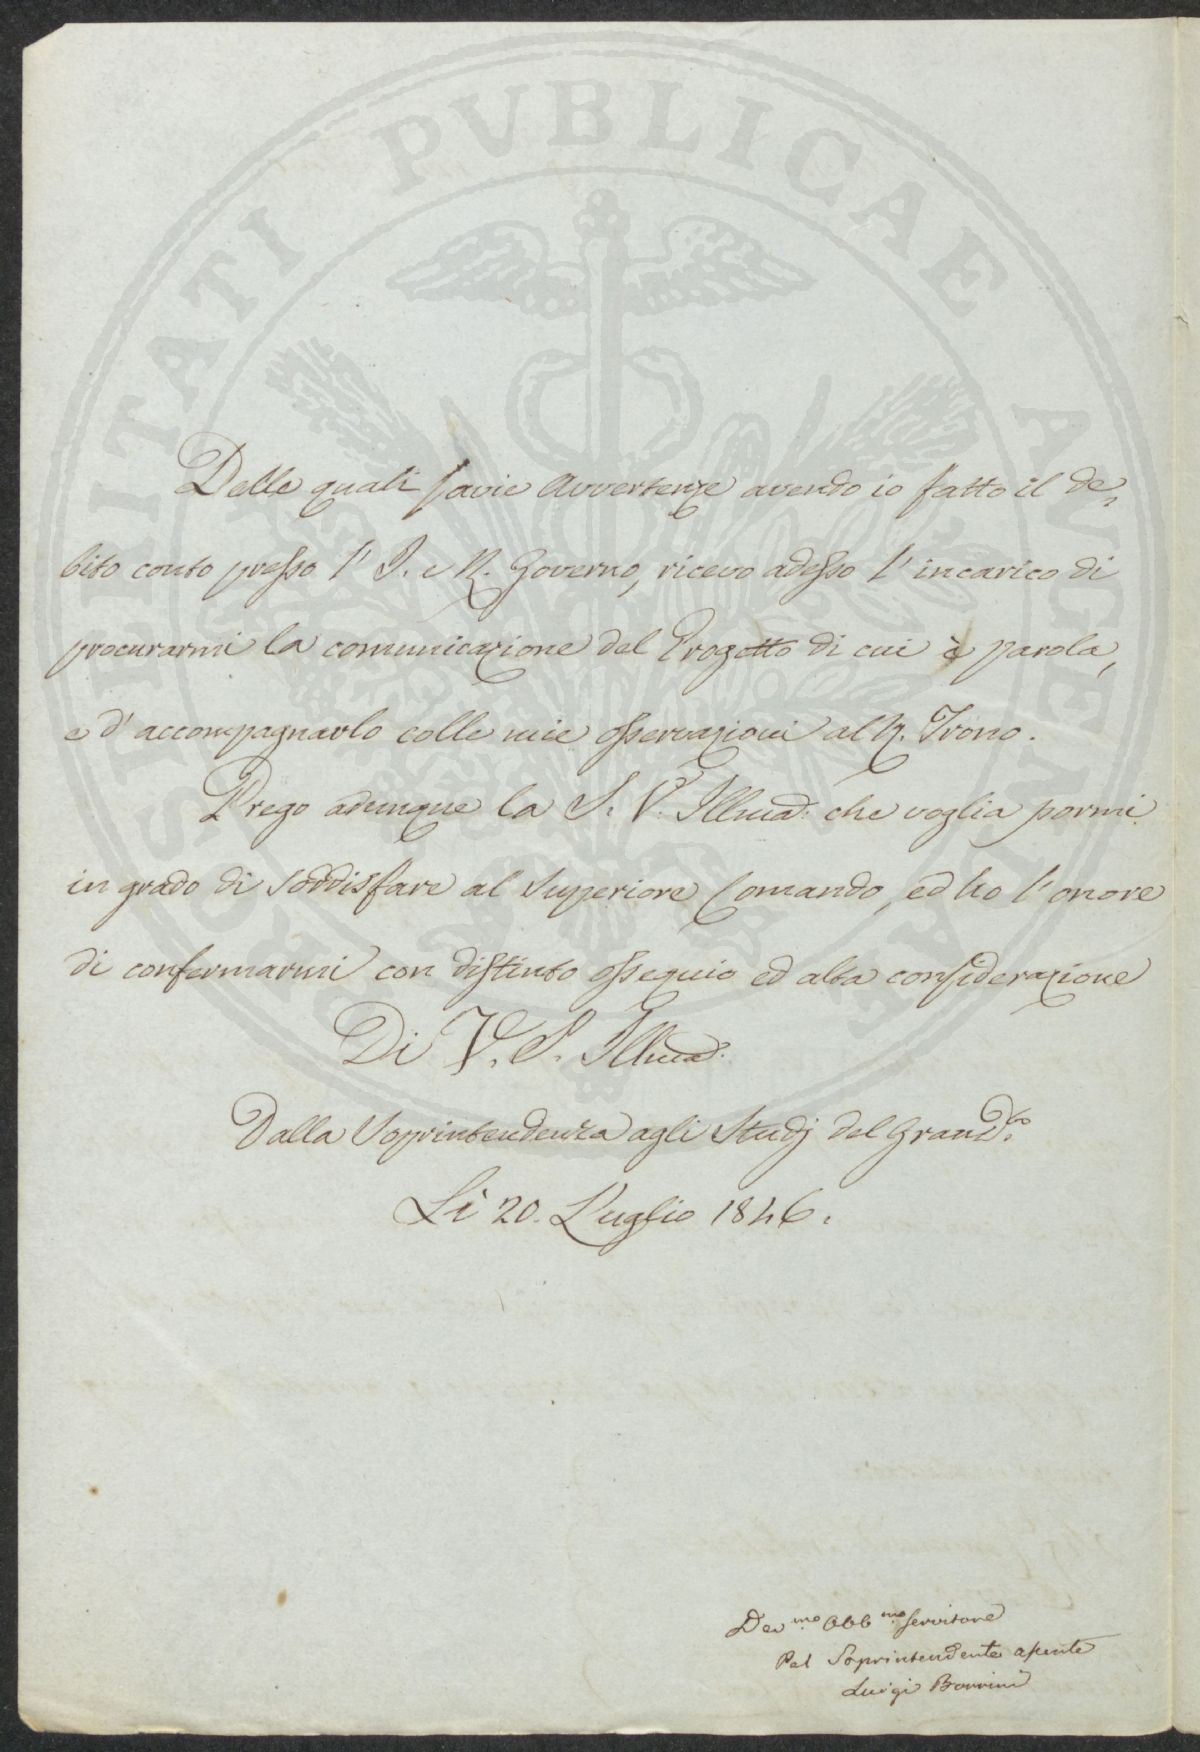 PROSPERITATI PVBLICAE AVGENDAE
Delle quali savie Avvertenze avendo io fatto il de-
bito conto presso l' I. e R. Governo, ricevo adesso l' incarico di
procurarmi la comunicazione del Progetto di cui è parola,
e d' accompagnarlo colle mie osservazioni al R. Trono.
Prego adunque la S. V. Illma. che voglia pormi
in grado di soddisfare al Superiore Comando, ed ho l' onore
di confermarmi con distinto ossequio ed alta considerazione
Di V. S. Illma.
Dalla Soprintendenza agli Studj del GranD.to
Li 20. Luglio 1846.
Dev.mo Obb.mo servitore
Pel Soprintendente assente
Luigi Bonini